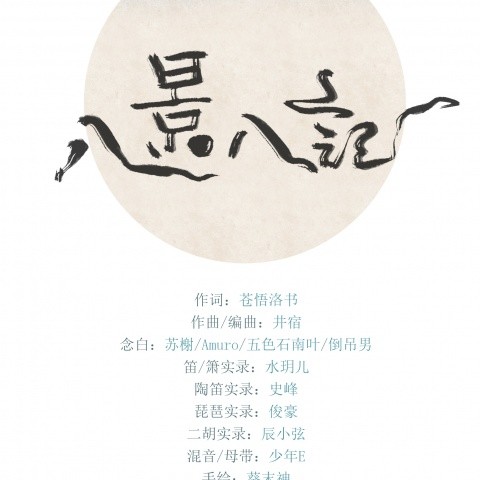 八景八記
作词：苍悟洛书
作曲/编曲：井宿
念白：苏榭/Amuro/五色石南叶/倒吊男
笛/箫实录：水玥儿
陶笛实录：史峰
琵琶实录：俊豪
二胡实录：辰小弦
混音/母带：少年E
手绘：葵末神